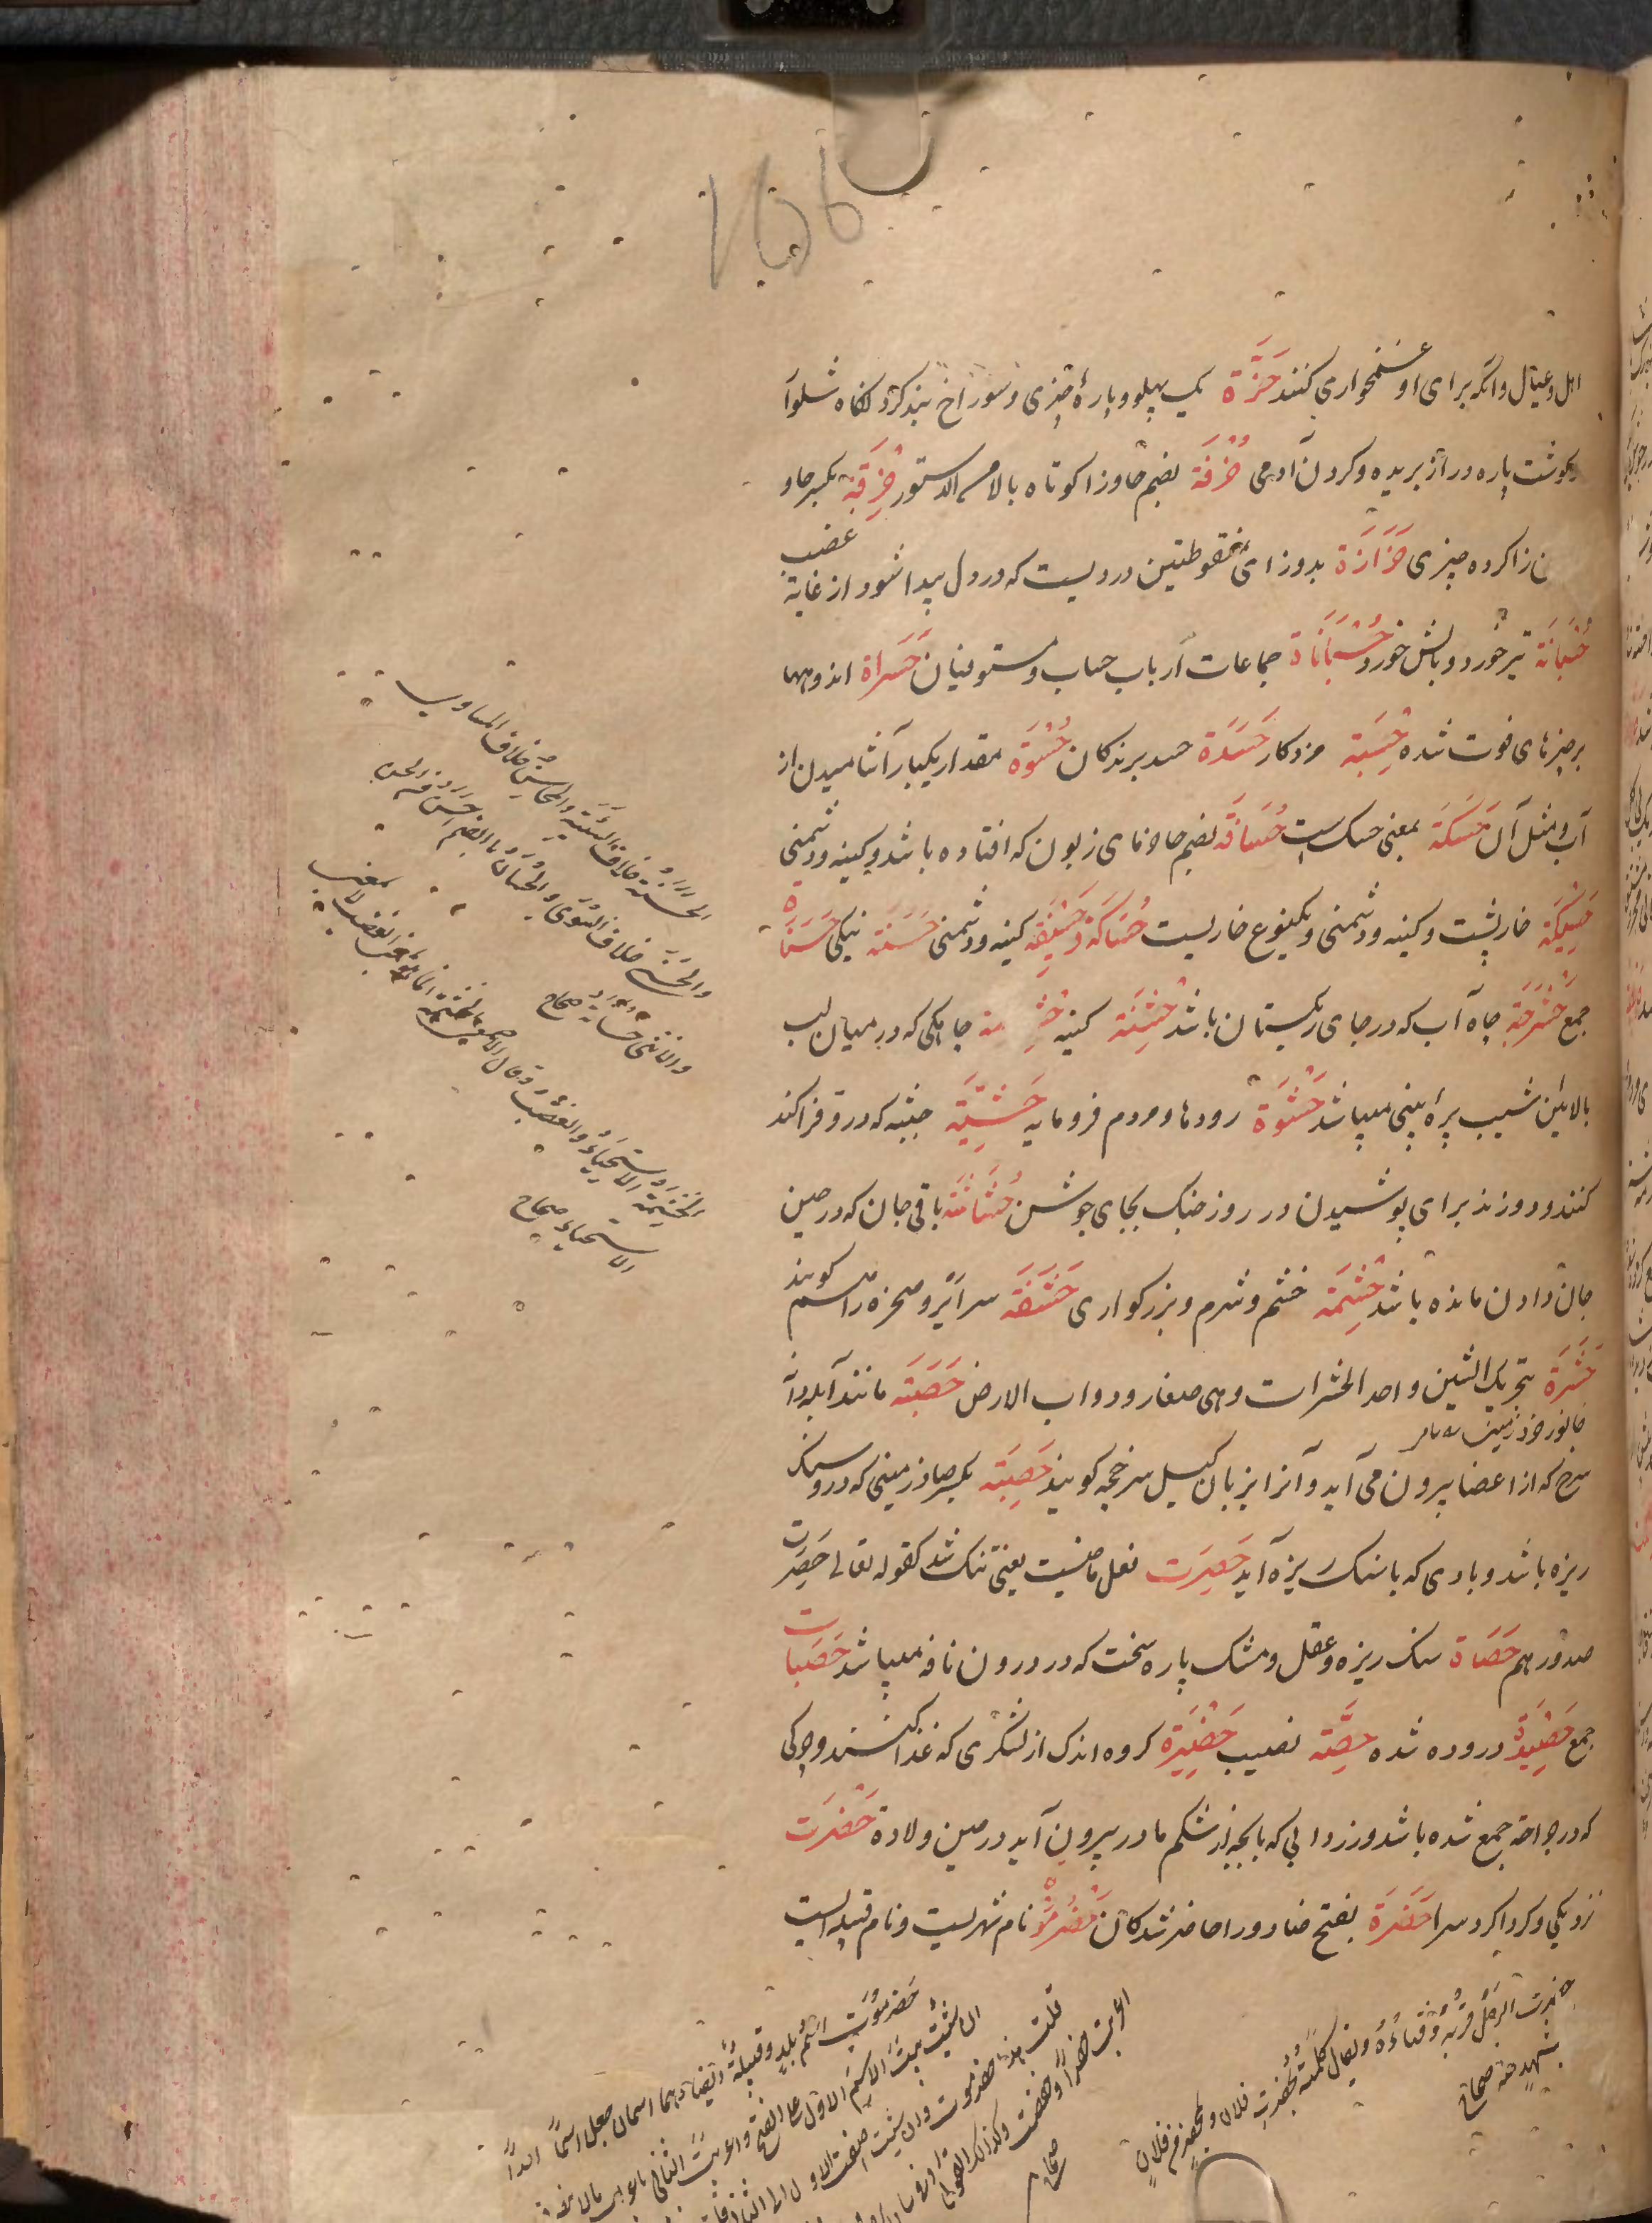 اهل و عیال و آنکه برای او غمخواری کنند حَزَّة یک پهلو و پارهٔ چیزی و سوراخ بند کردکاه شلوار
گوشت پاره دراز بریده و کردن آدمی حُزْقَة بضم حا وزا کوتاه بالا حِزْقَة بکسر حا و
زا کروه چیزی حَزَازَة بدو زای منقوطتین دردیست که در دل پیدا شود از غایة غضب
حُسْبَانَة تیر خورد و بالش خورد حُسْبَانَاة جماعات ارباب حساب و مستوفیان حَسَرَاة اندوهها
بر چیزهای فوت شده حِسْبَة مزد کار حَسَدَة حسد برندکان حُسْوَة مقدار یکبار آشامیدن از
آب و مثل آن حَسَکَة بمعنی حسک است حُسَافَة بضم حا خرمای زبون که افتاده باشد و کینه و دشمنی
حَسِیکَة خارپشت و کینه و دشمنی و یکنوع خاریست حُسَاکَة وحَسِیفَة کینه و دشمنی حَسَنَة نیکی حَسَنَاة
جمع حَشْرَجَة چاه آب که در جای ریکستان باشد حِشْنَة کینه جایکی که در میان لب
بالائین شیب پرهٔ بینی میباشد حُشْوَة رودها و مردم فرومایه حَشِیَّة جبّه که درو قزاکند
کنند و دوزند برای پوشیدن در روز جنک بجای جوشن حُشَاشَة باقی جان که در حین
جان دادن مانده باشد حِشْمَة خشم و شرم و بزرکواری حَشَفَة سر آنرو صخره را هم کویند
حَشَرَة بتحریک الشین واحد الحشرات وهی صغار دواب الارض حَصَبَة مانند آبله دانه
جانور خرد زمین
سرخ که از اعضا بیرون می آید و آنرا بزبان کیل سرخجه کویند حَصِبَة بکسر صاد زمینی که درو سنک
ریزه باشد و بادی که با سنک ریزه آید حَصِرَت فعل ماضیست یعنی تنک شد کقوله تعالی حَصِرَت
صدورهم حَصَاة سنک ریزه و عقل و مشک پاره سخت که در درون نافه میباشد حَصَبات
جمع حَصِیدَة دروده شده حِصَّة نصیب حَضِیرَة کروه اندک از لشکری که غذا کنند و چرکی
که در جراحة جمع شده باشد و زردابی که با بچه از شکم مادر بیرون آید در حین ولادة حَضْرَت
نزدیکی و کرداکرد سرا حَضَرَة بفتح ضاد و را حاضر شدکان حَضْرَمَوْت نام شهریست و نام قبیله ایست
الحسنة خلاف السیئة والمحاسن خلاف المساوی
والحسنی خلاف السوءی والحسان بالضم احسن من الحسن
والانثی حسانة صحاح
الحشمة الاستحیاء والغضب وقال الاصمعی الحشمة انما هو بمعنی الغضب لا بمعنی
الاستحیاء صحاح
حضرة الرجل قربه وفناءه ویقال کلمته بحضرة فلان وبمحضر من فلان
بمشهد منه صحاح
حضرموت اسم بلد وقبیلة ایضا وهما اسمان جعلا اسما واحدا
ان شئت بنیت الاسم الاول علی الفتح واعربت الثانی باعراب مالا ینصرف
قلت هذا حضرموت وان شئت اضفت الاول الی الثانی
اعربت حضرا وخفضت موتا وکذلک القول
صحاح